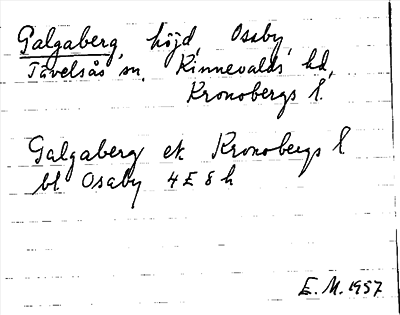 Galgaberg, höjd, Osaby,
Tävelsås sn. Kinnevalds hd,
Kronobergs l.
Galgaberg ek Kronobergs l
bl Osaby 4E8h
E.M. 1957